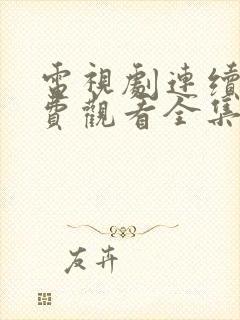 電視劇連續
費觀看全集
友卉